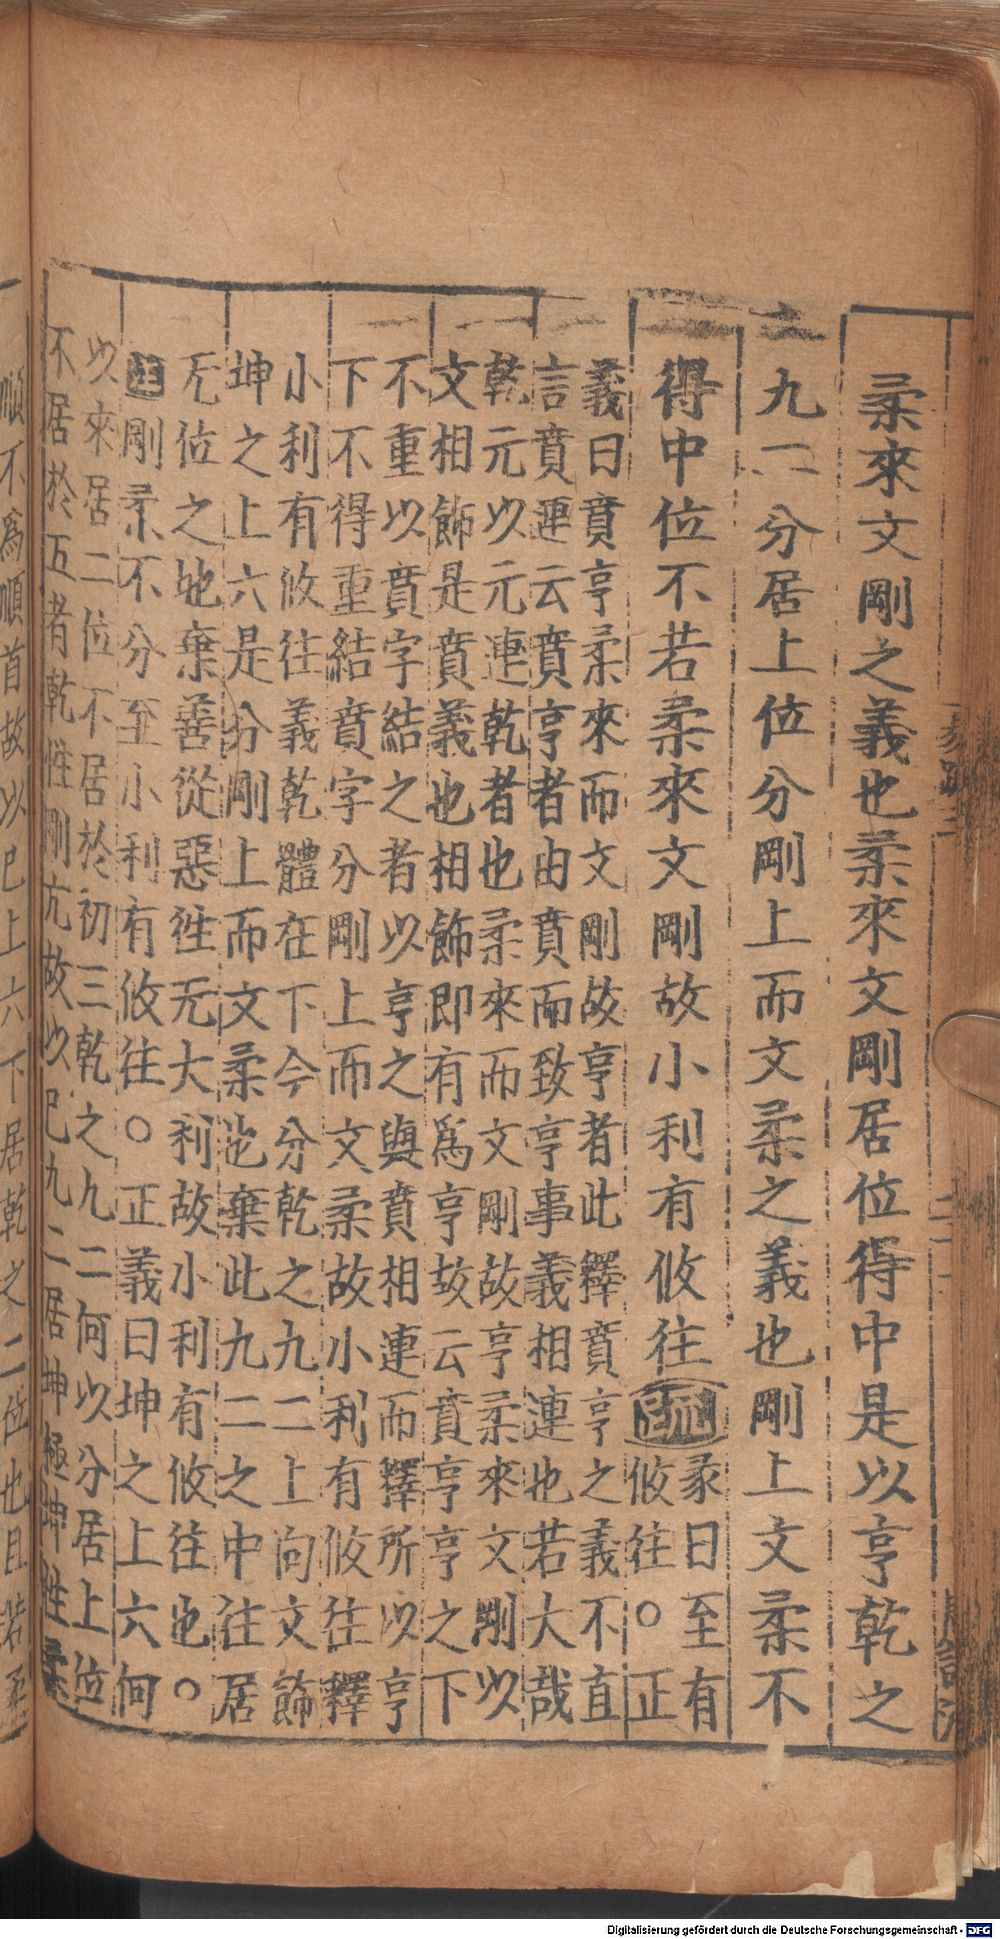 柔來文剛之義也柔來文剛居位得中是以亨乾之
九二分居上位分剛上而文柔之義也剛上文柔不
得中位不若柔來文剛故小利有攸往疏彖曰至有
攸往○正
義曰賁亨柔來而文剛故亨者此釋賁亨之義不直
言賁連云賁亨者由賁而致亨事義相連也若大哉
乾元以元連乾者也柔來而文剛故亨柔來文剛以
文相飾是賁義也相飾即有為亨故云賁亨亨之下
不重以賁字結之者以亨之與賁相連而釋所以亨
下不得重結賁字分剛上而文柔故小利有攸往釋
小利有攸往義乾體在下今分乾之九二上向文飾
坤之上六是分剛上而文柔也棄此九二之中往居
无位之地棄善從惡徃无大利故小利有攸往也○
注剛柔不分至小利有攸往○正義曰坤之上六何
以來居二位不居於初三乾之九二何以分居上位
不居於五者乾性剛亢故以己九二居坤極坤性柔
順不爲順首故以己上六下居乾之二位也且若柔
Digitalisierung gefördert durch die Deutsche Forschungsgemeinschaft - DFG